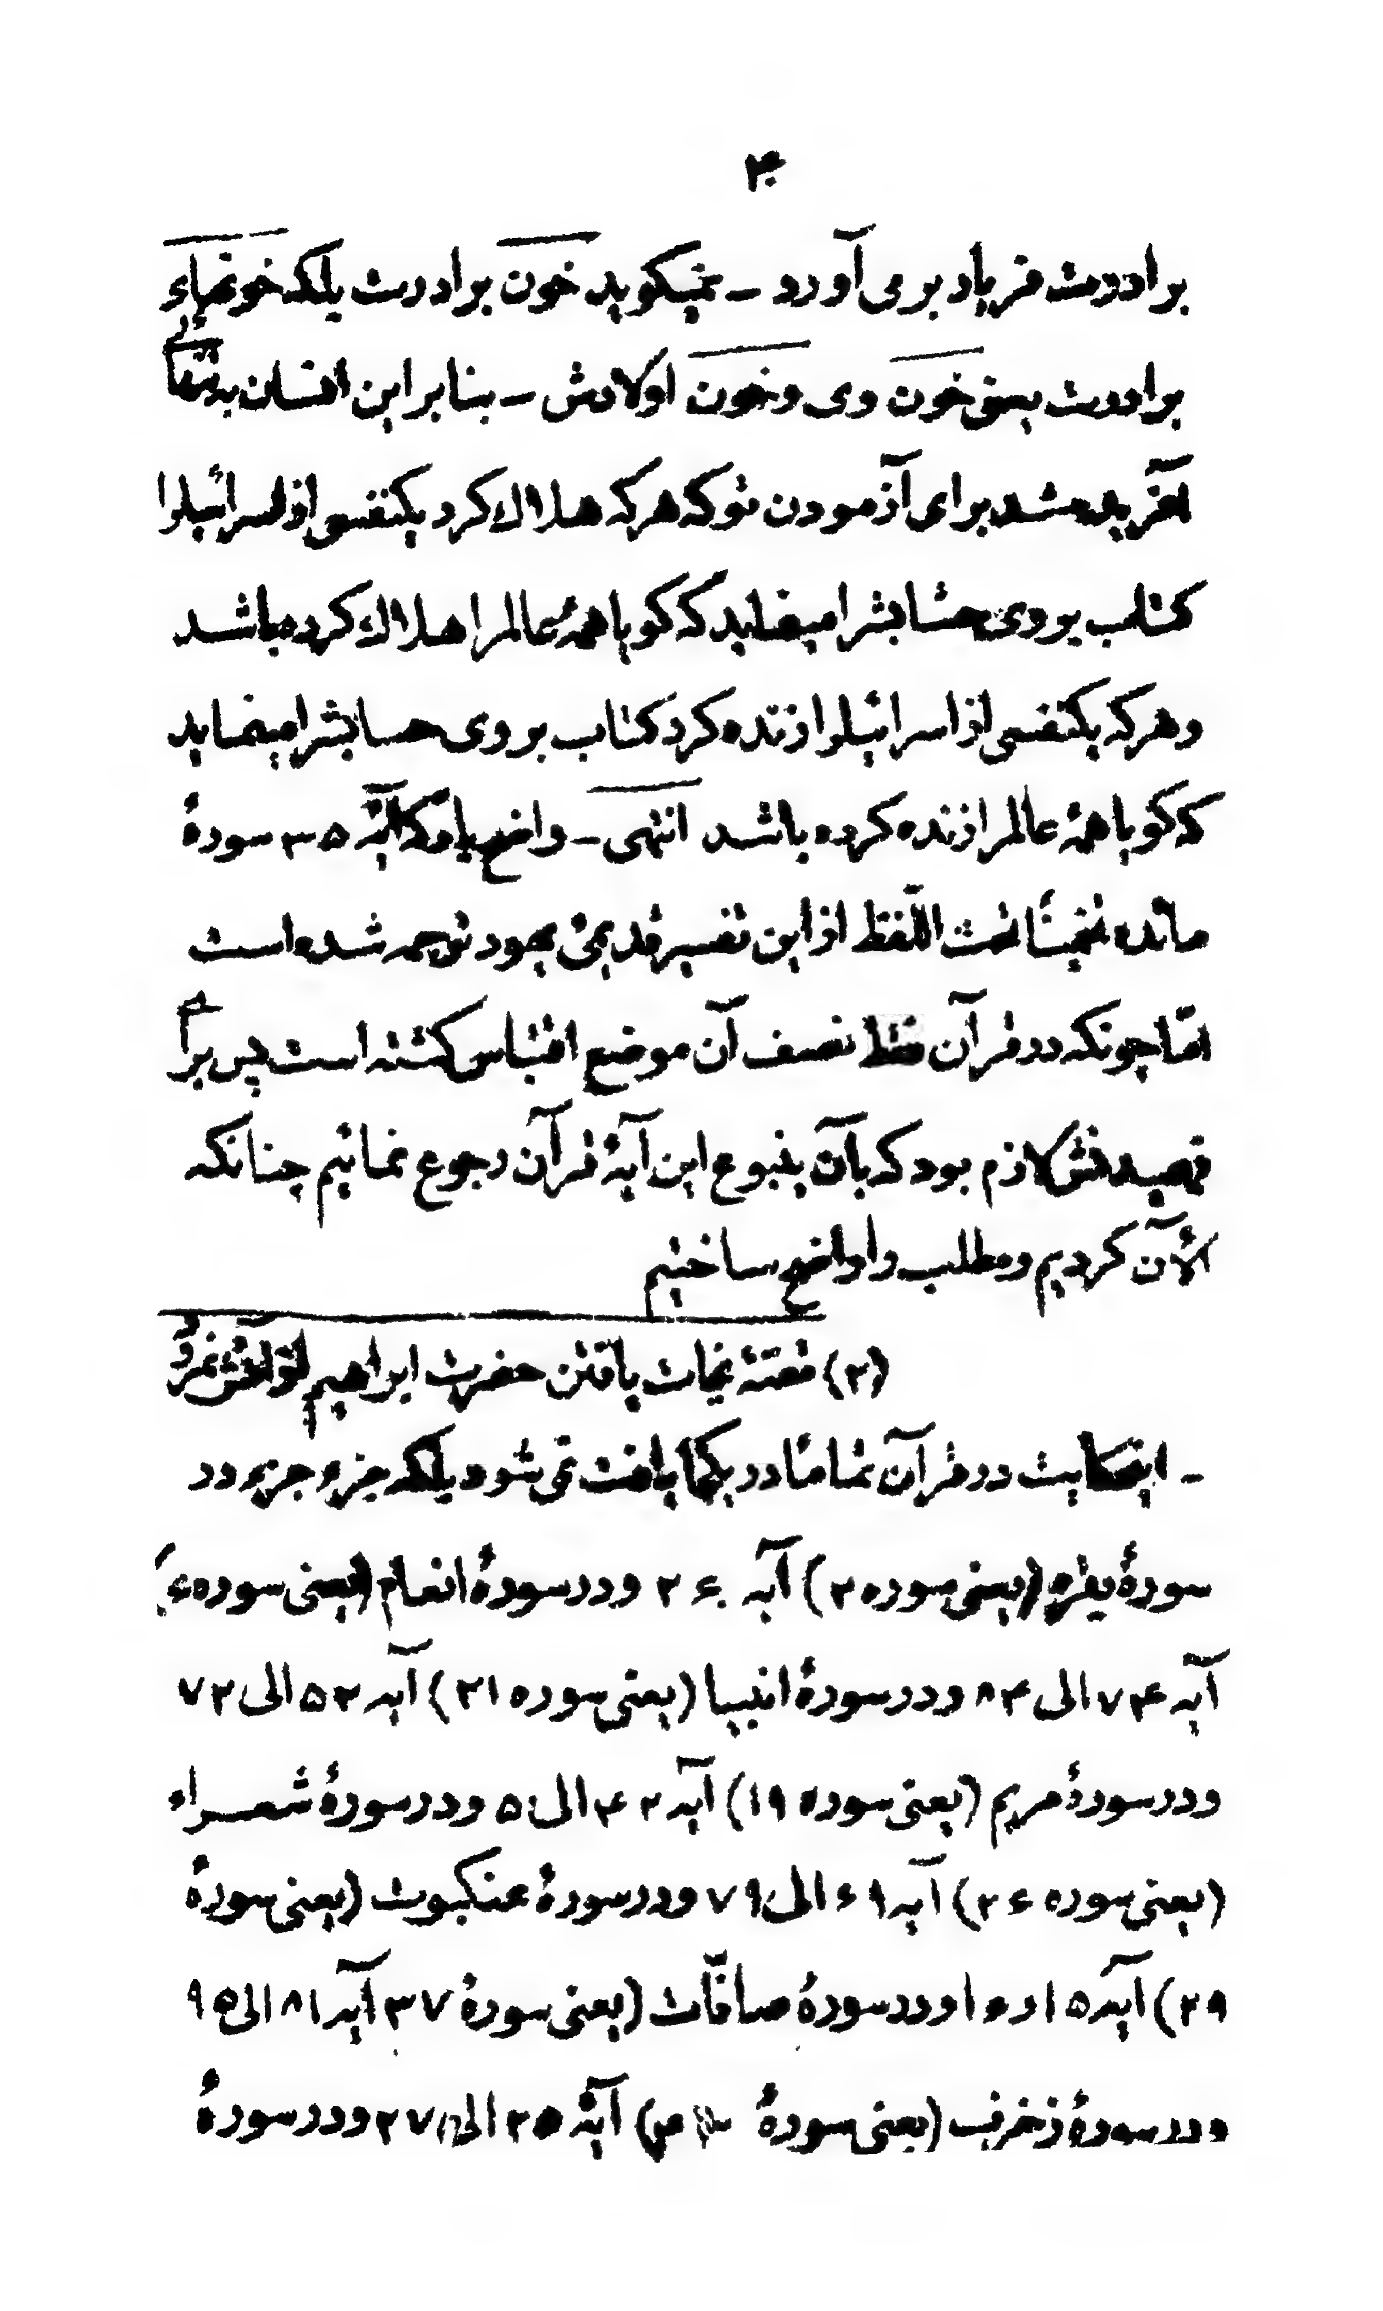 ۴۰
برادرت فریاد بر می آورد – نمیگوید خون برادرت بلکه خونهاء
برادرت یعنی خون وی و خون اولادش – بنا بر این انسان به تنهائی
آفریده شد برای آزمودن تو که هر که هلاك کرد یکنفسی از اسرائیلرا
کتاب بروی حسابشرا مینماید که گویا همهٔ عالمرا هلاك کرده باشد
و هر که یکنفسی از اسرائیلرا زنده کرد کتاب بروی حسابشرا مینماید
که گویا همهٔ عالمرا زنده کرده باشد انتهی – واضح باد که آیهٔ ۳۵ سورهٔ
مائده تخمیناً تحت اللّفظ از این تفسیر قدیمیٔ یهود ترجمه شده است
امّا چونکه در قرآن فقط نصف آن موضع اقتباس گشته است پس برای
فهمیدنش لازم بود که بآن ینبوع این آیهٔ قرآن رجوع نمائیم چنانکه
الآن کردیم و مطلب را واضح ساختیم
(۲) قصّهٔ نجات یافتن حضرت ابراهیم از آتش نمرود
– اینحکایت در قرآن تماماً در یکجا یافت نمی شود بلکه جزء جزء در
سورهٔ بقره (یعنی سوره ۲) آیه ۲۶۰ و در سورهٔ انعام (یعنی سوره ۶)
آیه ۷۴ الی ۸۴ و در سورهٔ انبیا (یعنی سوره ۲۱) آیه ۵۲ الی ۷۲
و در سورهٔ مریم (یعنی سوره ۱۹) آیه ۴۲ الی ۵۰ و در سورهٔ شعراء
(یعنی سوره ۲۶) آیه ۶۹ الی ۷۹ و در سورهٔ عنکبوت (یعنی سورهٔ
۲۹) آیه ۱۵ و ۱۶ و در سورهٔ صافّات (یعنی سورهٔ ۳۷ آیه ۸۱ الی ۹۵
و در سورهٔ زخرف (یعنی سورهٔ آیهٔ ۲۵ الی ۲۷ و در سورهٔ